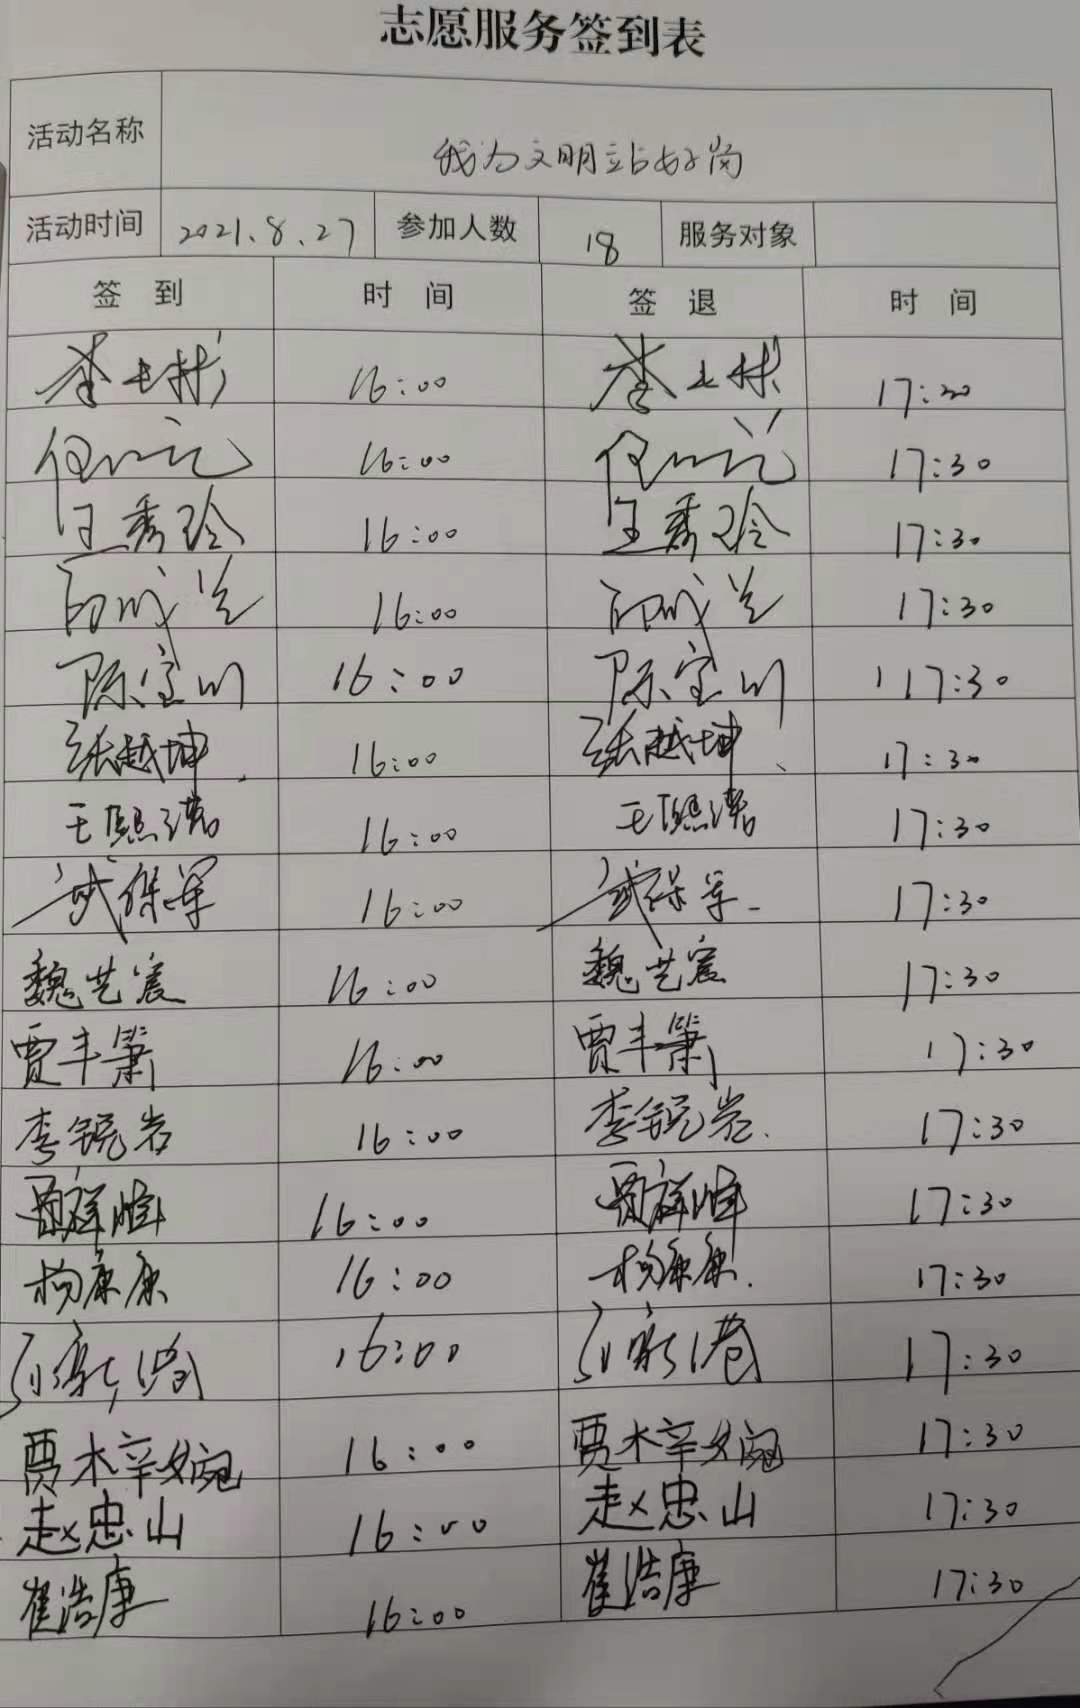 志愿服务签到表
活动名称 我为文明站好岗
活动时间 2021.8.27 参加人数 18 服务对象
签到 时间 签退 时间
16:00 17:30
16:00 17:30
王秀玲 16:00 王秀玲 17:30
16:00 17:30
陈宝川 16:00 陈宝川 17:30
张越坤 16:00 张越坤 17:30
王熙潞 16:00 王熙潞 17:30
武保军 16:00 武保军 17:30
魏艺宸 16:00 魏艺宸 17:30
贾丰箫 16:00 贾丰箫 17:30
李锐岩 16:00 李锐岩 17:30
16:00 17:30
杨康康 16:00 杨康康 17:30
16:00 17:30
贾木辛婉 16:00 贾木辛婉 17:30
赵忠山 16:00 赵忠山 17:30
崔浩康 16:00 崔浩康 17:30